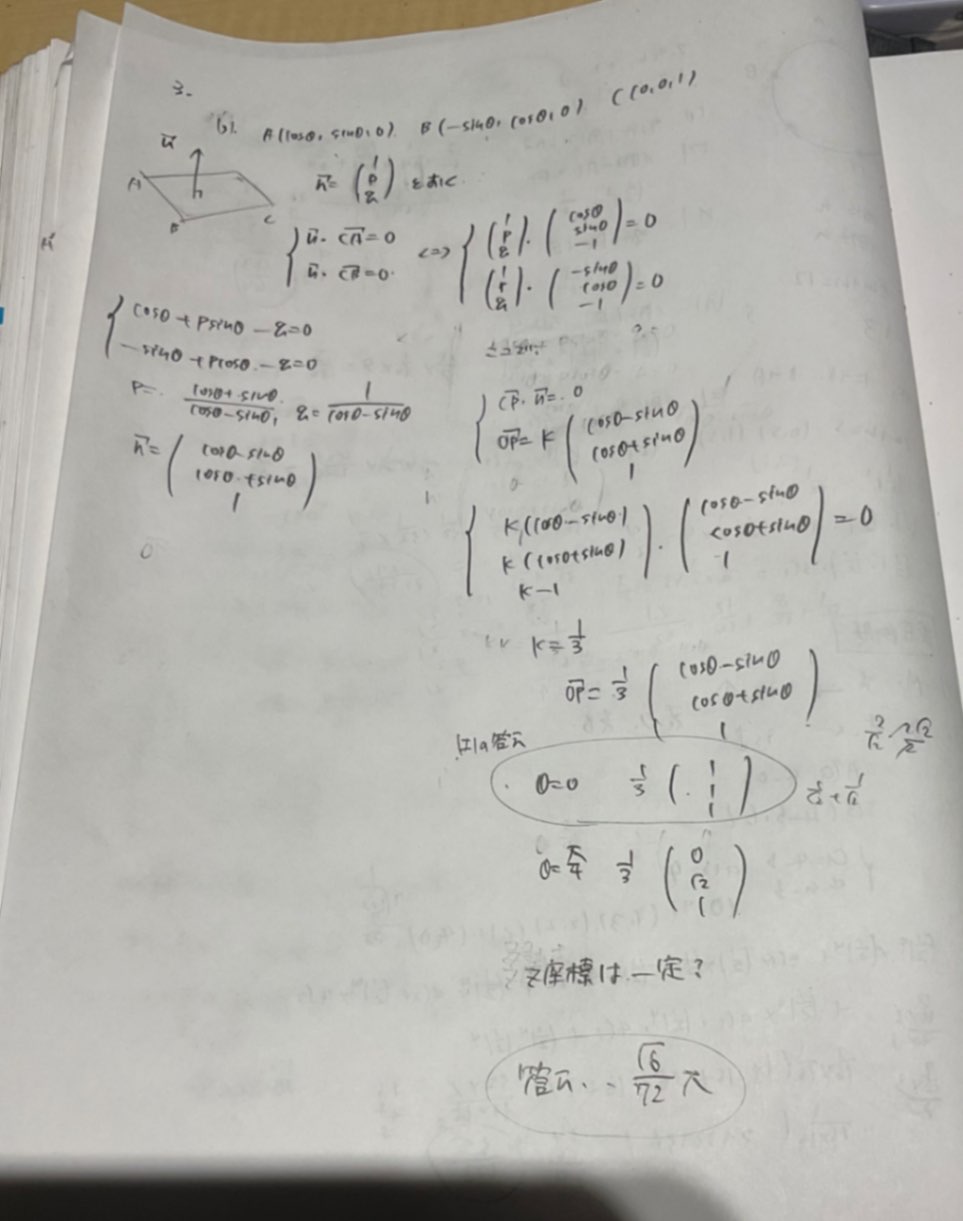 3.
(b). A(cosθ, sinθ, 0). B(-sinθ, cosθ, 0) C(0,0,1)
n⃗ A B C
n⃗= (1 p q) とおく
{ n⃗・CA⃗=0 n⃗・CB⃗=0. ⇔ { (1 p q)・(cosθ sinθ -1)=0 (1 p q)・(-sinθ cosθ -1)=0
{ cosθ+psinθ-q=0 -sinθ+pcosθ-q=0
p= cosθ+sinθ/cosθ-sinθ, q= 1/cosθ-sinθ
n⃗= (cosθ-sinθ cosθ+sinθ 1)
{ CP⃗・n⃗=0 OP⃗=k (cosθ-sinθ cosθ+sinθ 1)
{ (k(cosθ-sinθ) k(cosθ+sinθ) k-1)・(cosθ-sinθ cosθ+sinθ -1)=0
k=1/3
OP⃗=1/3 (cosθ-sinθ cosθ+sinθ 1)
(1)の答え
θ=0 1/3 (1 1 1)
1/√2+1/√2
θ=π/4 1/3 (0 √2 1)
z座標は一定?
答え.. √6/72 π